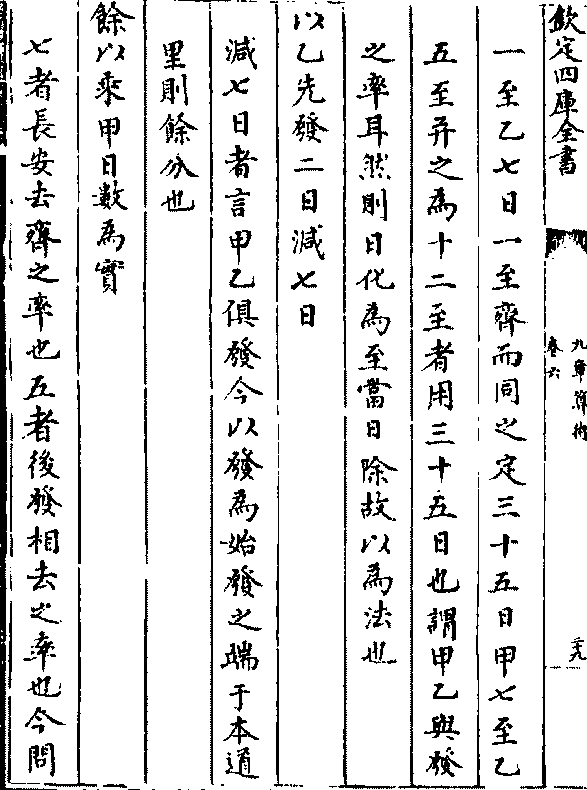 欽定四庫全書
九章算術
卷六
二九
一至乙七日一至齊而同之定三十五日甲七至乙
五至并之為十二至者用三十五日也謂甲乙與發
之率耳然則日化為至當日除故以為法也
以乙先發二日減七日
減七日者言甲乙俱發今以發為始發之端于本道
里則餘分也
餘以乘甲日數為實
七者長安去齊之率也五者後發相去之率也今問